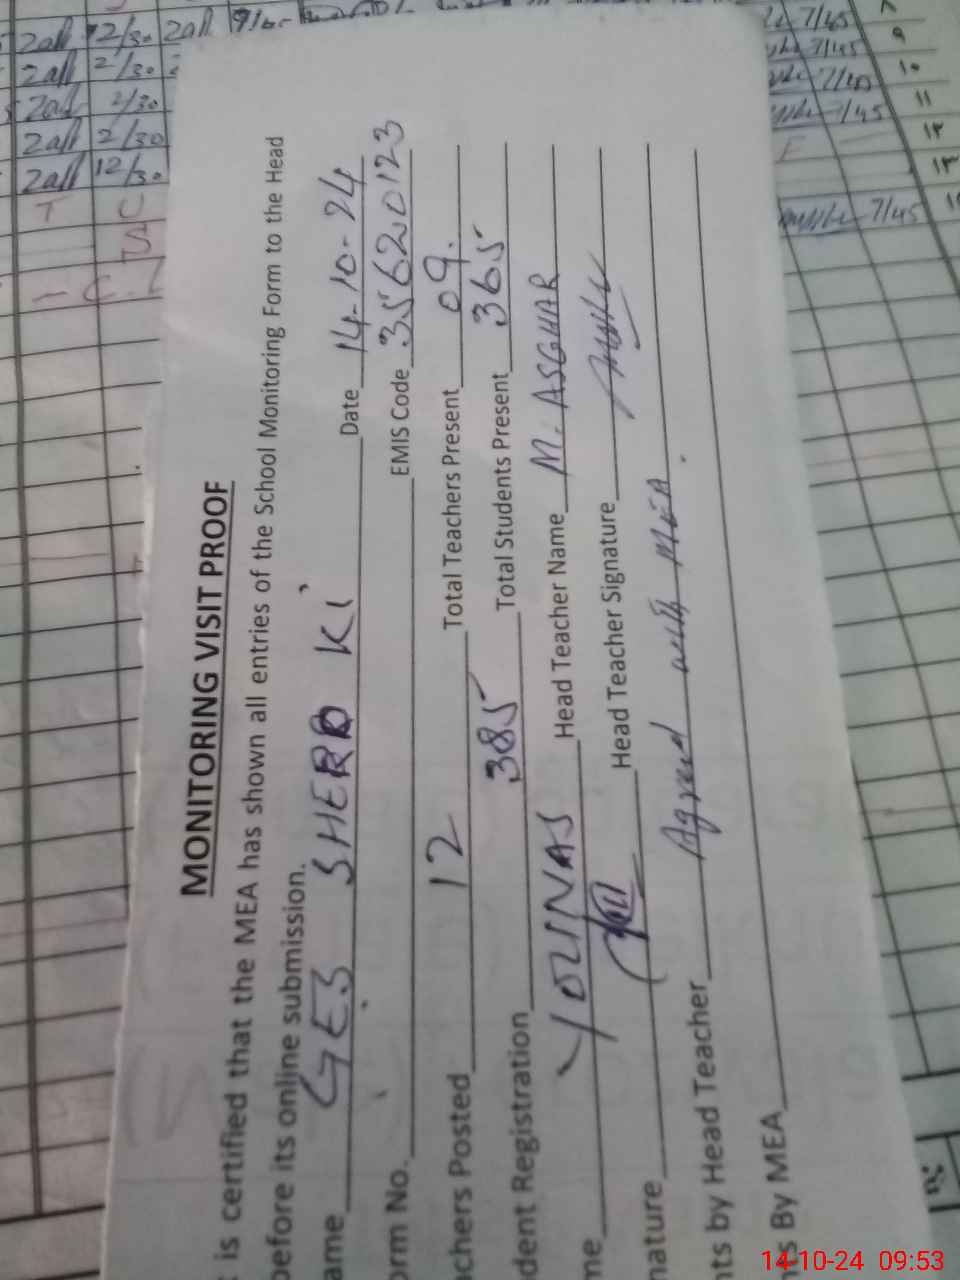 MONITORING VISIT PROOF
is certified that the MEA has shown all entries of the School Monitoring Form to the Head
before its online submission.
ame GES SHERO KI Date 14-10-24
orm No. EMIS Code 35620123
achers Posted 12 Total Teachers Present 09.
dent Registration 385 Total Students Present 365
me YOUNAS Head Teacher Name M. ASGHAR
nature Head Teacher Signature
nts by Head Teacher Agreed with MEA.
ts By MEA
2all 12/30 2all
2all 2/30
2all 2/30
2all 2/30
2all 12/30
7/45 ٨
7/45 ٩
7/45 ١٠
7/45 ١١
١٢
١٣
7/45
14-10-24 09:53